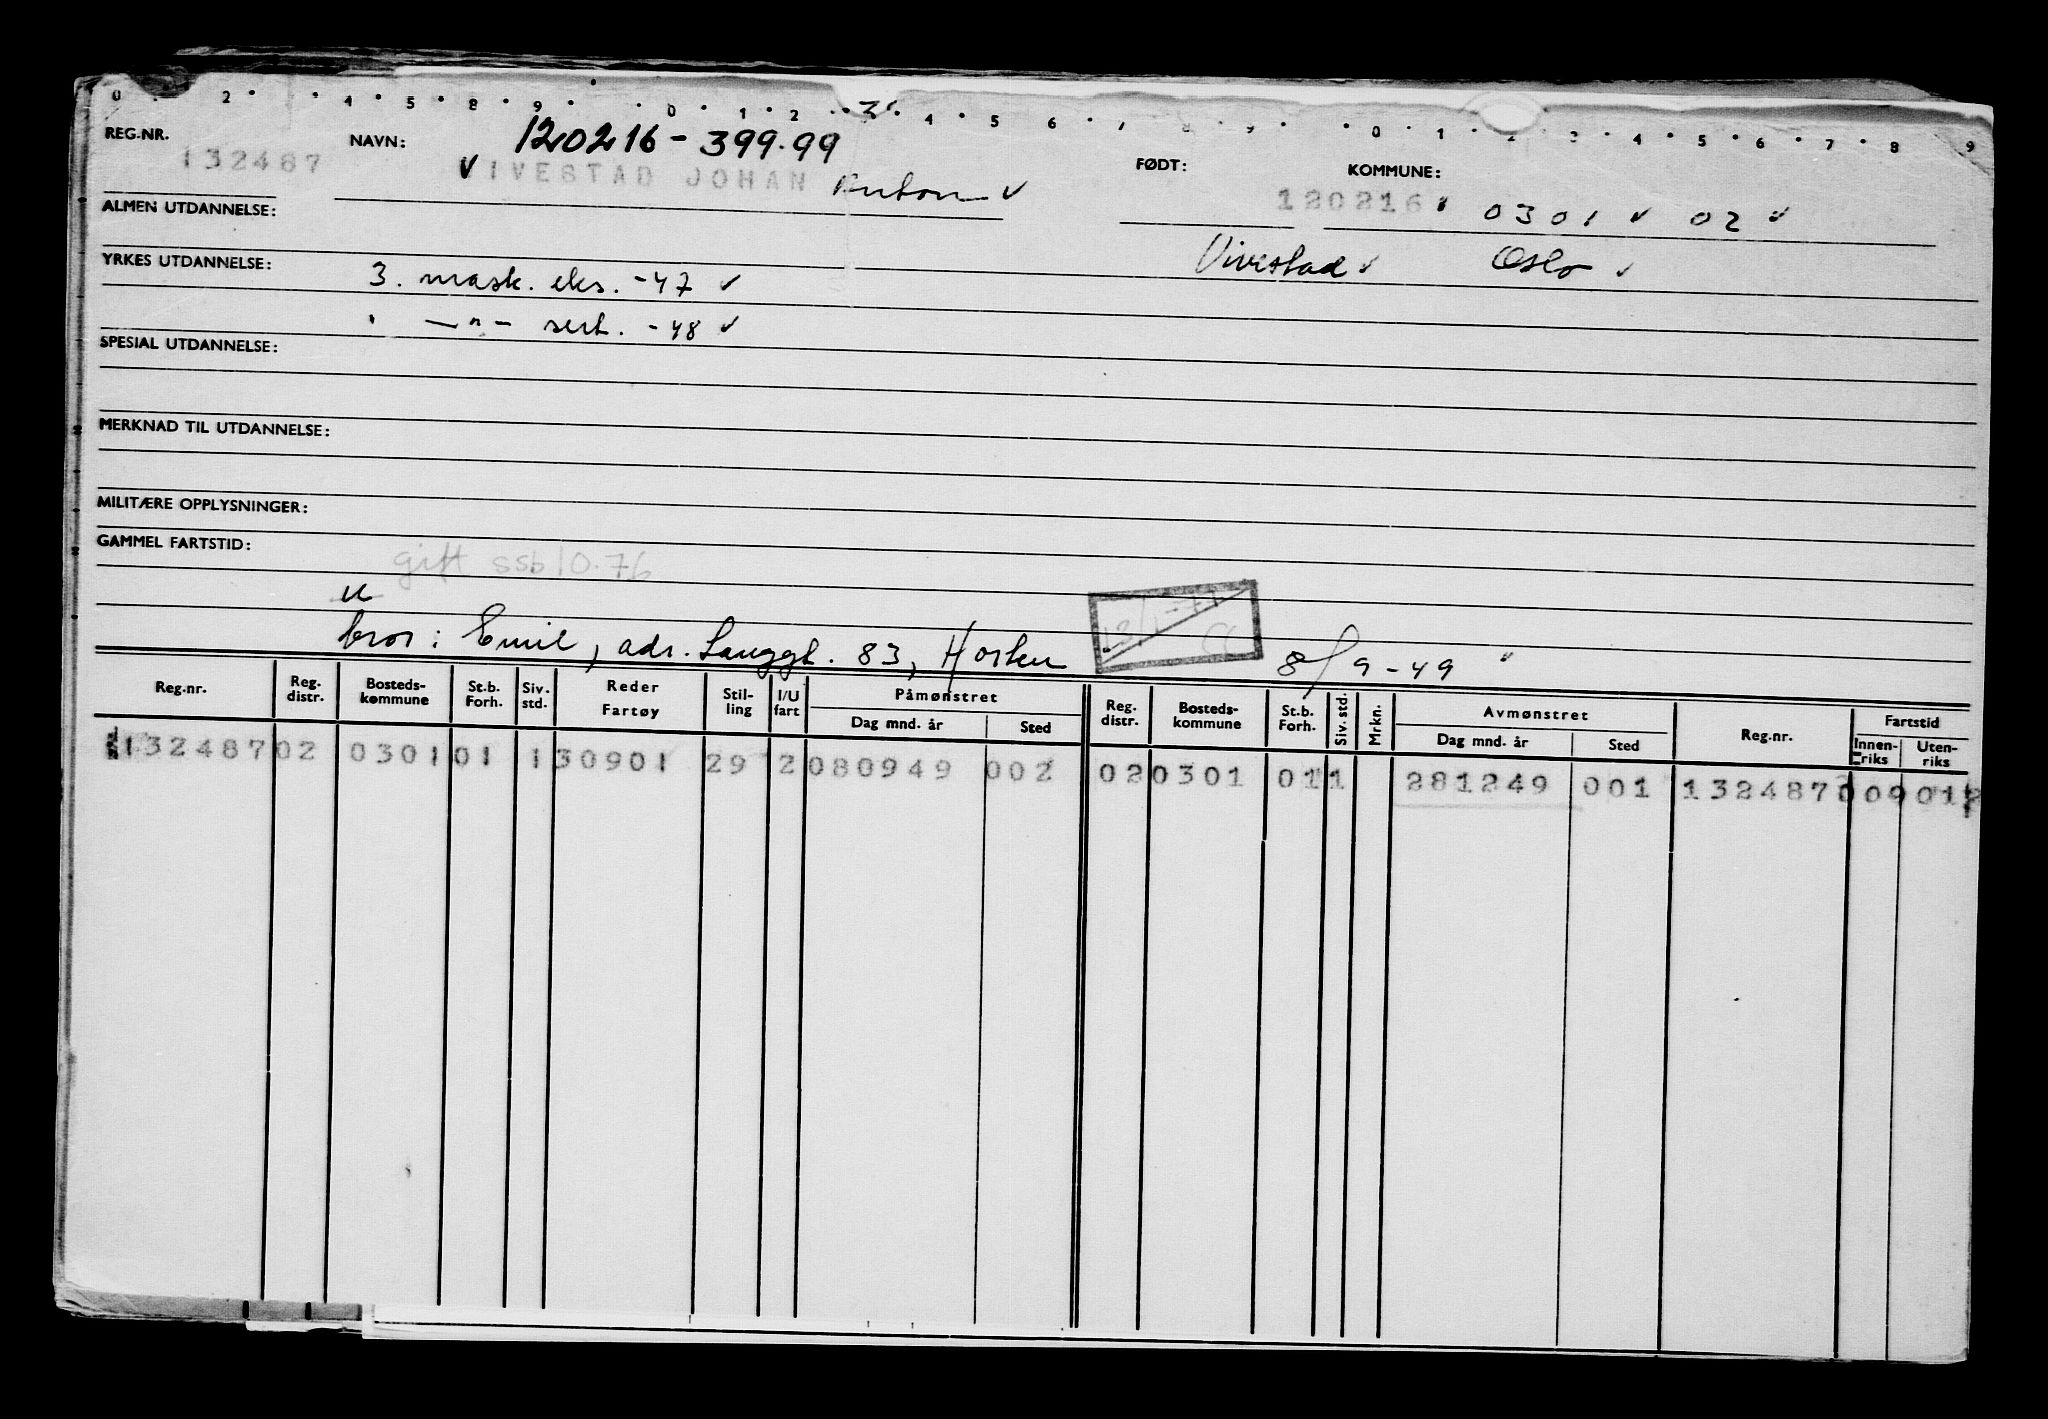 0 2 4 5 8 9 0 1 2 3 4 5 6 7 8 9 0 1 2 3 4 5 6 7 8 9
REG.NR. 132487 NAVN: 120216-399.99 FØDT: KOMMUNE:
VIVESTAD JOHAN Anton 120216 0301 02
ALMEN UTDANNELSE: Vivestad Oslo
YRKES UTDANNELSE: 3. mask. eks. -47
—"— sert. -48
SPESIAL UTDANNELSE:
MERKNAD TIL UTDANNELSE:
MILITÆRE OPPLYSNINGER:
GAMMEL FARTSTID:
gift ssb 10.76
u
bror: Emil, adr. Langgt. 83, Horten 8/9-49
Reg.nr. Reg. distr. Bosteds-kommune St.b. Forh. Siv. std. Reder Fartøy Stil-ling I/U fart Påmønstret Dag mnd. år Sted Reg. distr. Bosteds-kommune St.b. Forh. Siv. std. Mrkn. Avmønstret Dag mnd. år Sted Reg.nr. Fartstid Innen-riks Uten-riks
132487 02 0301 01 1 30901 29 2 080949 002 02 0301 01 1 281249 001 132487 009 012